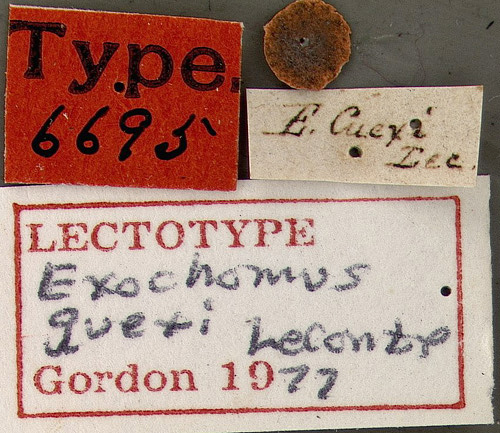 Type.
6695
E. Guexi
Lec.
LECTOTYPE
Exochomus
guexi LeConte
Gordon 1977